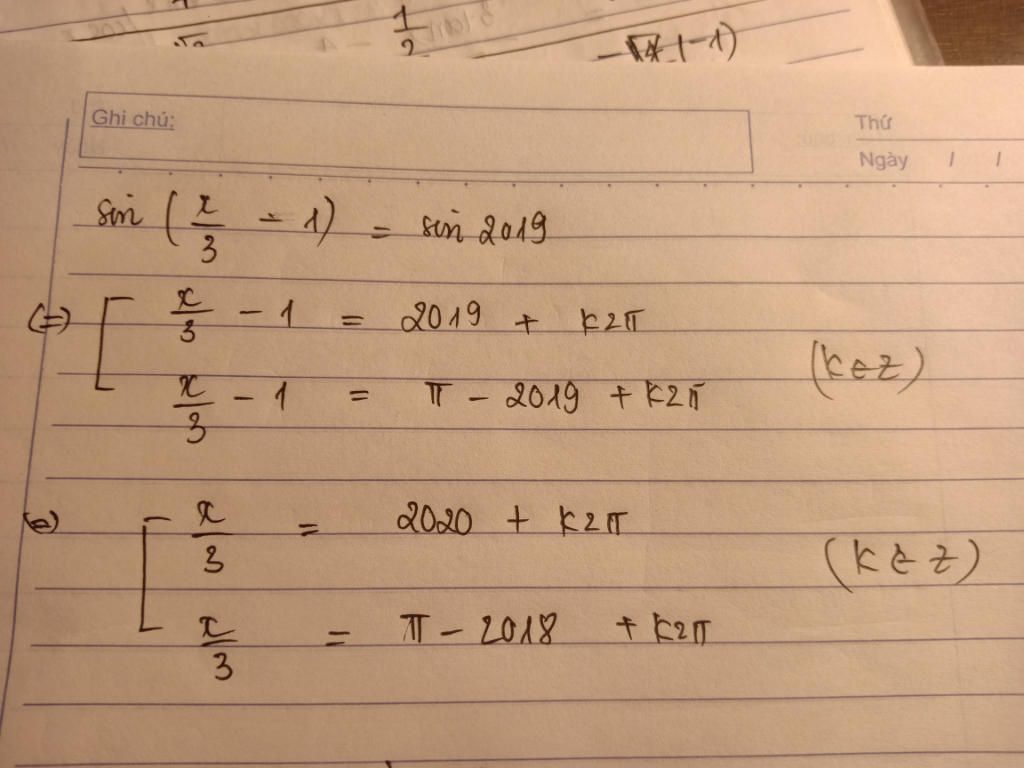 1/2
-√4 (-1)
Ghi chú:
Thứ
Ngày / /
sin (x/3 - 1) = sin 2019
(=) [ x/3 - 1 = 2019 + k2π
x/3 - 1 = π - 2019 + k2π (k ∈ Z)
(=) [ x/3 = 2020 + k2π
x/3 = π - 2018 + k2π (k ∈ Z)